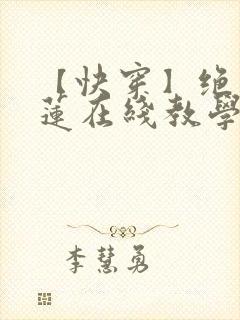 【快穿】绝
蓮在綫教學
李慧勇